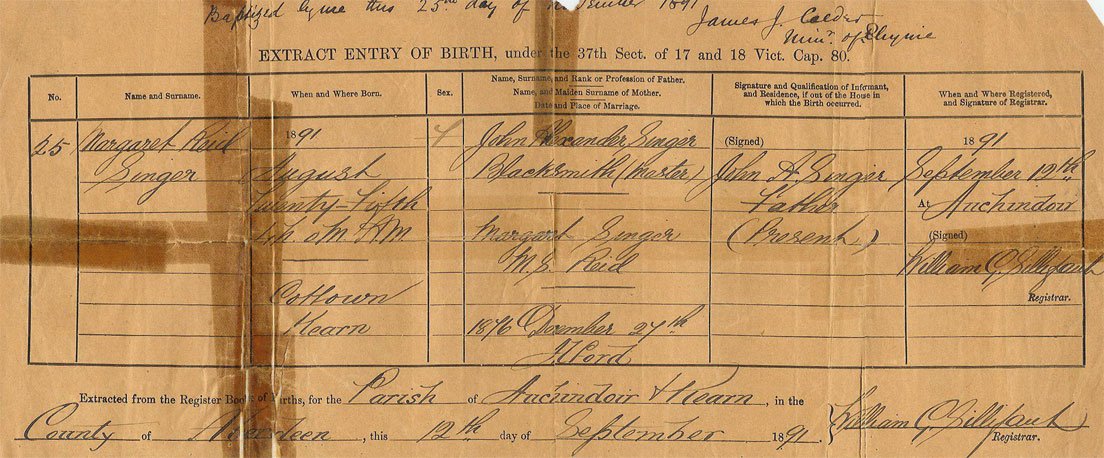 Baptized by me this 25th day of November 1891
James J. Calder
Minr. of Rhynie
EXTRACT ENTRY OF BIRTH, under the 37th Sect. of 17 and 18 Vict. Cap. 80.
No.
Name and Surname.
When and Where Born.
Sex.
Name, Surname, and Rank or Profession of Father.
Name, and Maiden Surname of Mother.
Date and Place of Marriage.
Signature and Qualification of Informant,
and Residence, if out of the House in
which the Birth occurred.
When and Where Registered,
and Signature of Registrar.
25
Margaret Reid
Singer
1891
August
Twenty-Fifth
A.M.
Cottown
Kearn
John Alexander Singer
Blacksmith (Master)
Margaret Singer
M.S. Reid
1876 December 27th
Alford
(Signed)
John A. Singer
Father
(Present)
1891
September 12th
At Auchindoir
(Signed)
William G. Sillifant
Registrar.
Extracted from the Register Book of Births, for the Parish of Auchindoir & Kearn, in the
County of Aberdeen, this 12th day of September 1891.
William G. Sillifant
Registrar.